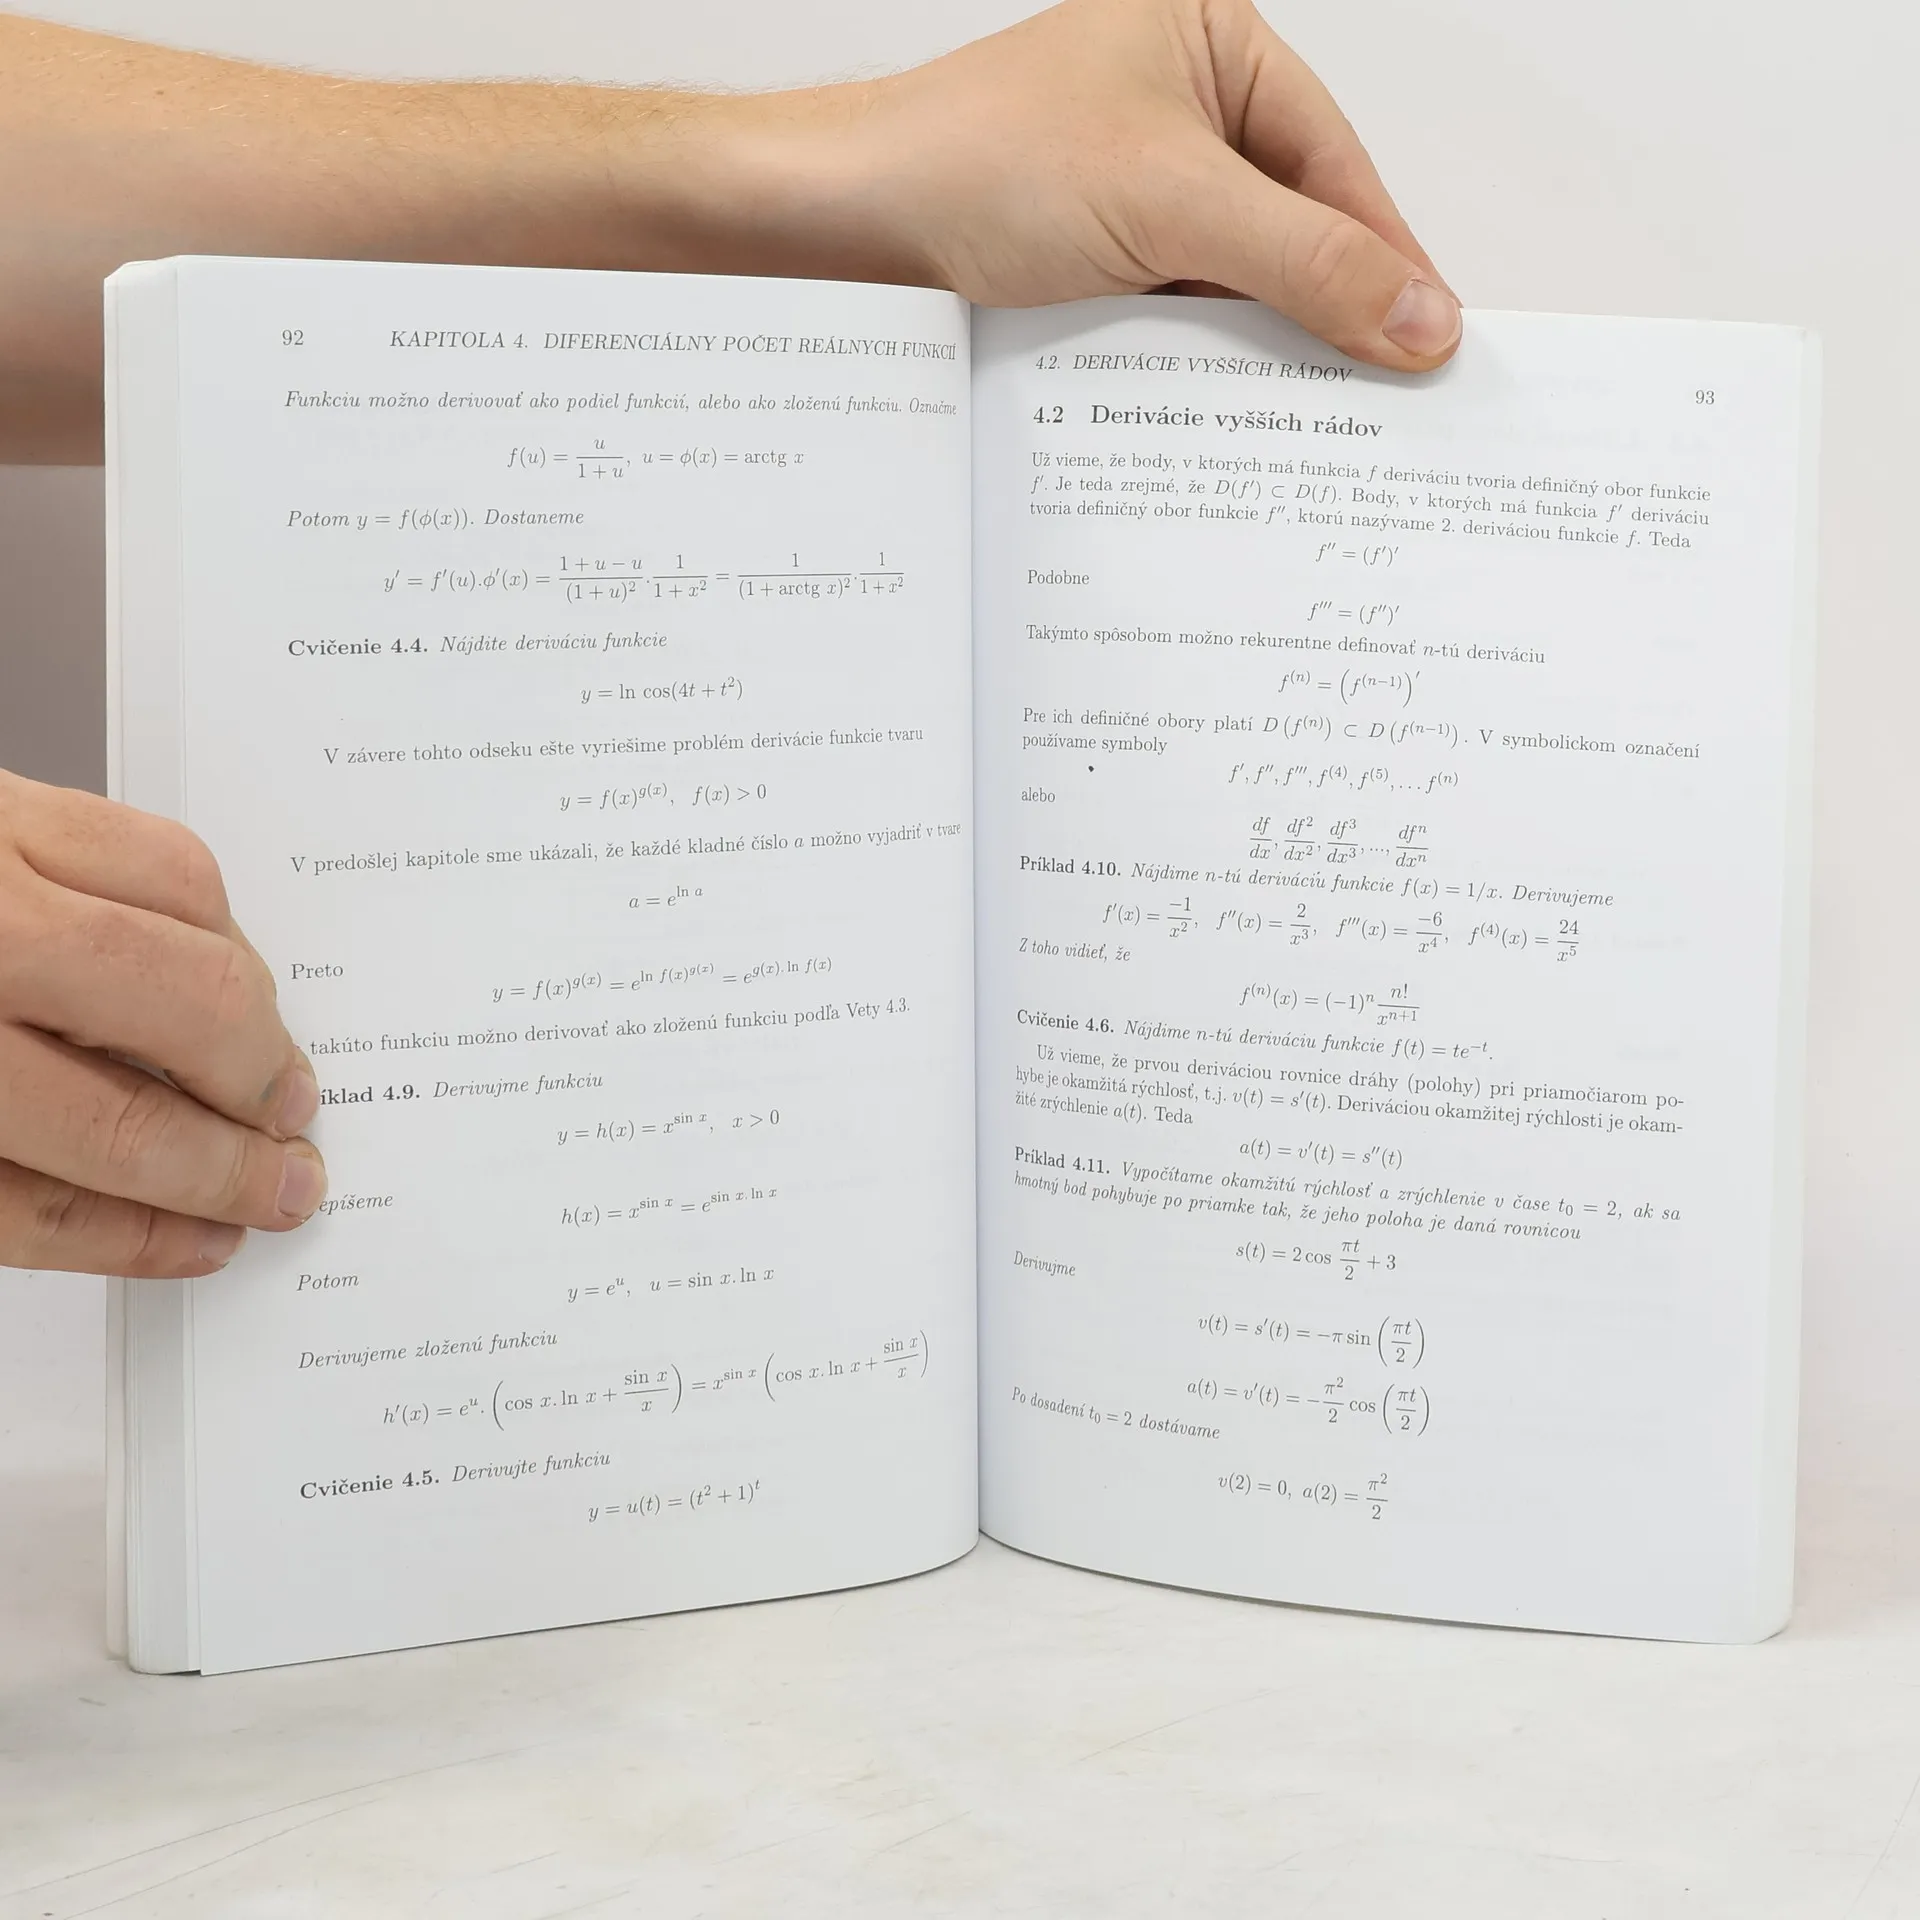 92 KAPITOLA 4. DIFERENCIÁLNY POČET REÁLNYCH FUNKCIÍ
Funkciu možno derivovať ako podiel funkcií, alebo ako zloženú funkciu. Označme
f(u) = u/(1 + u), u = ϕ(x) = arctg x
Potom y = f(ϕ(x)). Dostaneme
y′ = f′(u).ϕ′(x) = (1 + u − u)/(1 + u)² · 1/(1 + x²) = 1/(1 + arctg x)² · 1/(1 + x²)
Cvičenie 4.4. Nájdite deriváciu funkcie
y = ln cos(4t + t²)
V závere tohto odseku ešte vyriešime problém derivácie funkcie tvaru
y = f(x)^g(x), f(x) > 0
V predošlej kapitole sme ukázali, že každé kladné číslo a možno vyjadriť v tvare
a = e^(ln a)
Preto
y = f(x)^g(x) = e^(ln f(x)^g(x)) = e^(g(x). ln f(x))
takúto funkciu možno derivovať ako zloženú funkciu podľa Vety 4.3.
íklad 4.9. Derivujme funkciu
y = h(x) = x^(sin x), x > 0
epíšeme
h(x) = x^(sin x) = e^(sin x. ln x)
Potom
y = e^u, u = sin x. ln x
Derivujeme zloženú funkciu
h′(x) = e^u. (cos x. ln x + sin x/x) = x^(sin x) (cos x. ln x + sin x/x)
Cvičenie 4.5. Derivujte funkciu
y = u(t) = (t² + 1)^t
4.2. DERIVÁCIE VYŠŠÍCH RÁDOV 93
4.2 Derivácie vyšších rádov
Už vieme, že body, v ktorých má funkcia f deriváciu tvoria definičný obor funkcie
f′. Je teda zrejmé, že D(f′) ⊂ D(f). Body, v ktorých má funkcia f′ deriváciu
tvoria definičný obor funkcie f″, ktorú nazývame 2. deriváciou funkcie f. Teda
f″ = (f′)′
Podobne
f‴ = (f″)′
Takýmto spôsobom možno rekurentne definovať n-tú deriváciu
f⁽ⁿ⁾ = (f⁽ⁿ⁻¹⁾)′
Pre ich definičné obory platí D (f⁽ⁿ⁾) ⊂ D (f⁽ⁿ⁻¹⁾). V symbolickom označení
používame symboly
f′, f″, f‴, f⁽⁴⁾, f⁽⁵⁾, . . . f⁽ⁿ⁾
alebo
df/dx, df²/dx², df³/dx³, ..., dfⁿ/dxⁿ
Príklad 4.10. Nájdime n-tú deriváciu funkcie f(x) = 1/x. Derivujeme
f′(x) = −1/x², f″(x) = 2/x³, f‴(x) = −6/x⁴, f⁽⁴⁾(x) = 24/x⁵
Z toho vidieť, že
f⁽ⁿ⁾(x) = (−1)ⁿ n!/xⁿ⁺¹
Cvičenie 4.6. Nájdime n-tú deriváciu funkcie f(t) = te⁻ᵗ.
Už vieme, že prvou deriváciou rovnice dráhy (polohy) pri priamočiarom po-
hybe je okamžitá rýchlosť, t.j. v(t) = s′(t). Deriváciou okamžitej rýchlosti je okam-
žité zrýchlenie a(t). Teda
a(t) = v′(t) = s″(t)
Príklad 4.11. Vypočítame okamžitú rýchlosť a zrýchlenie v čase t₀ = 2, ak sa
hmotný bod pohybuje po priamke tak, že jeho poloha je daná rovnicou
s(t) = 2 cos πt/2 + 3
Derivujme
v(t) = s′(t) = −π sin (πt/2)
a(t) = v′(t) = −π²/2 cos (πt/2)
Po dosadení t₀ = 2 dostávame
v(2) = 0, a(2) = π²/2